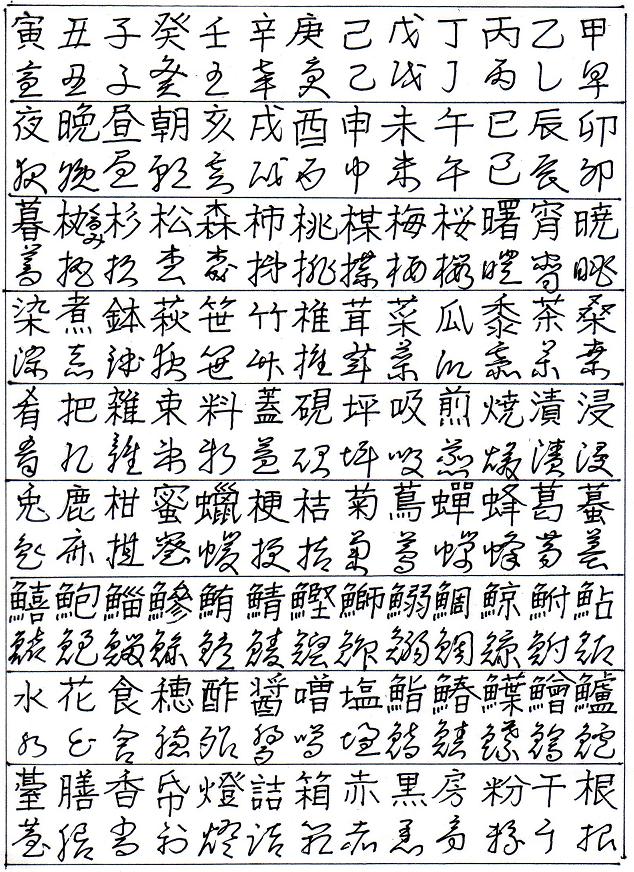 甲乙丙丁戊己庚辛壬癸子丑寅
甲乙丙丁戊己庚辛壬癸子丑寅
卯辰巳午未申酉戌亥朝昼晩夜
卯辰巳午未申酉戌亥朝昼晩夜
暁宵曙桜梅楳桃柿森松杉くるみ暮
暁宵曙桜梅楳桃柿森松杉暮
桑茶黍瓜菜茸椎竹笹萩鉢煮染
桑茶黍瓜菜茸椎竹笹萩鉢煮染
浸漬焼煎吸坪硯蓋料束雑把肴
浸漬焼煎吸坪硯蓋料束雑把肴
蟇葛蜂蟬蔦菊桔梗蠟蜜柑鹿兎
蟇葛蜂蟬蔦菊桔梗蠟蜜柑鹿兎
鮎鮒鯨鯛鰯鰤鰹鯖鮪鰺鯔鮑鱚
鮎鮒鯨鯛鰯鰤鰹鯖鮪鰺鯔鮑鱚
鱸鱠鰈鰆鮨塩噌醤酢穂食花水
鱸鱠鰈鰆鮨塩噌醤酢穂食花水
根干粉房黒赤箱詰燈帋香膳薹
根干粉房黒赤箱詰燈帋香膳薹